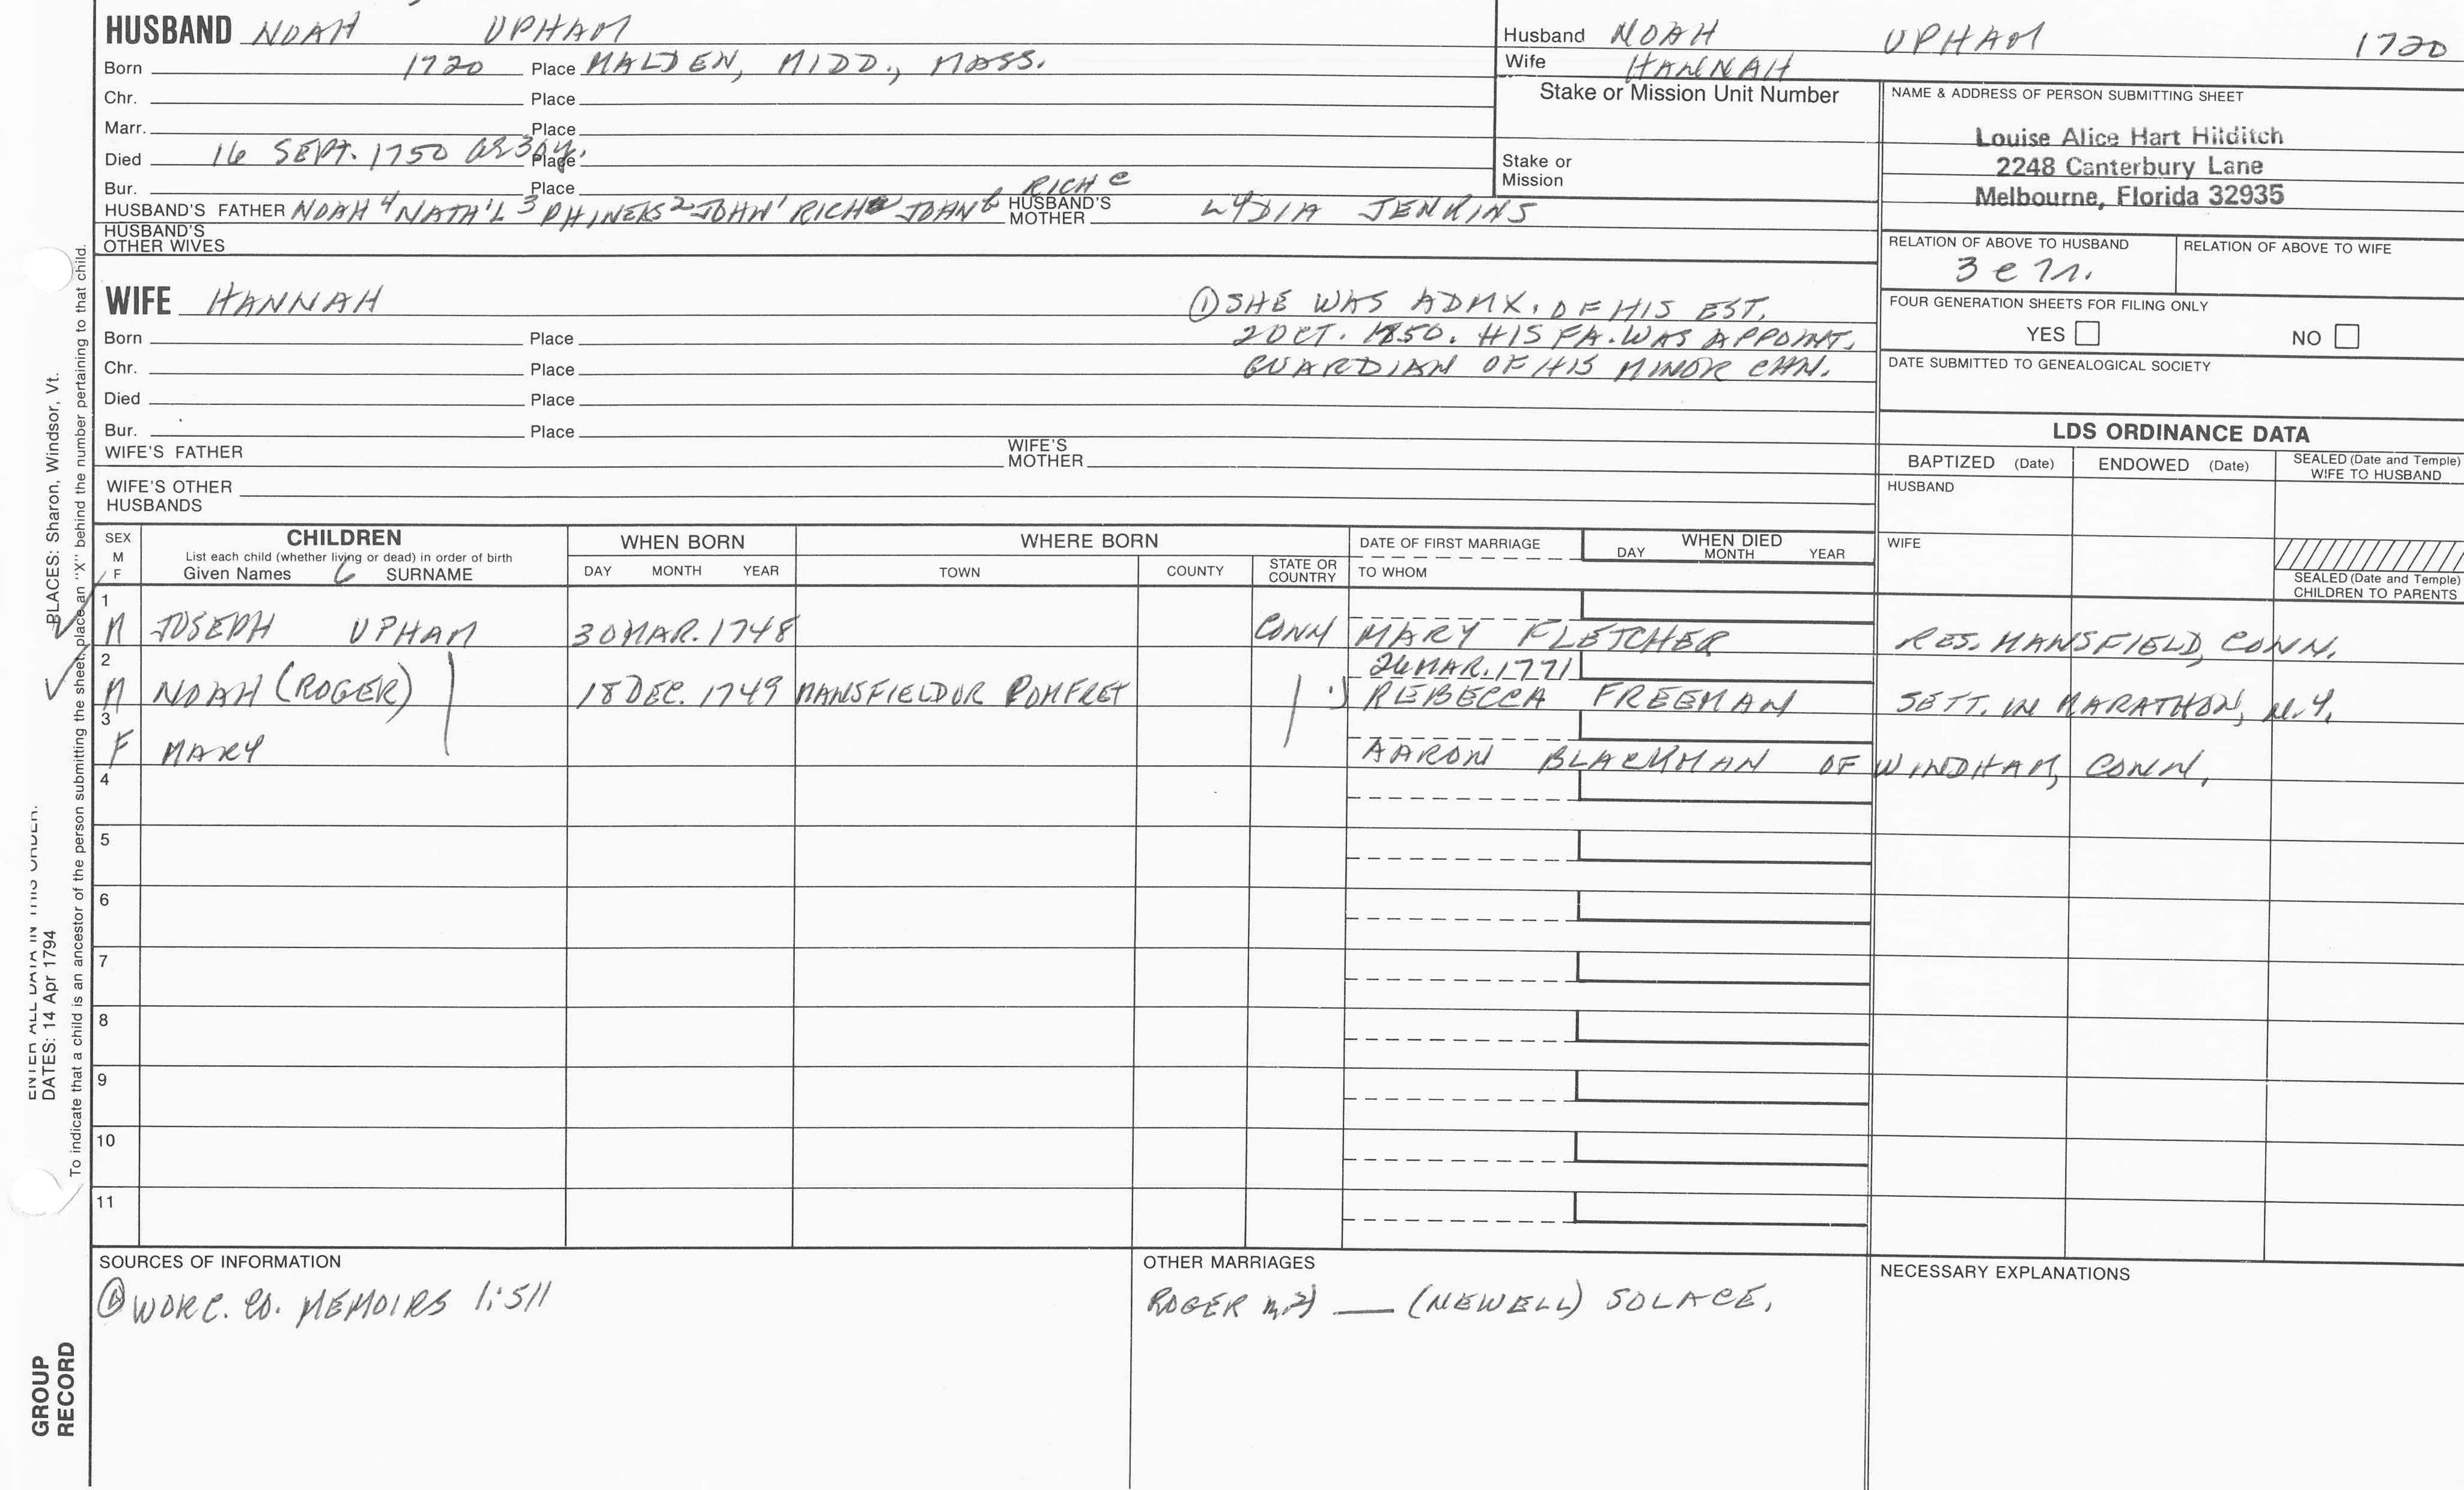 HUSBAND NOAH UPHAM
Born 1720 Place MALDEN, MIDD., MASS.
Chr. Place
Marr. Place
Died 16 SEPT. 1750 AE 30Y. Place
Bur. Place
HUSBAND'S FATHER NOAH 4 NATH'L 3 PHINEAS 2 JOHN 1 RICH JOHN HUSBAND'S MOTHER LYDIA JENKINS
RICH C
HUSBAND'S OTHER WIVES
Husband NOAH UPHAM 1720
Wife HANNAH
Stake or Mission Unit Number
Stake or Mission
NAME & ADDRESS OF PERSON SUBMITTING SHEET
Louise Alice Hart Hilditch
2248 Canterbury Lane
Melbourne, Florida 32935
RELATION OF ABOVE TO HUSBAND RELATION OF ABOVE TO WIFE
3 C
WIFE HANNAH
① SHE WAS ADMX. OF HIS EST.
2 OCT. 1850. HIS FA. WAS APPOINT.
GUARDIAN OF HIS MINOR CHN.
Born Place
Chr. Place
Died Place
Bur. Place
WIFE'S FATHER WIFE'S MOTHER
WIFE'S OTHER HUSBANDS
FOUR GENERATION SHEETS FOR FILING ONLY
YES NO
DATE SUBMITTED TO GENEALOGICAL SOCIETY
LDS ORDINANCE DATA
BAPTIZED (Date) ENDOWED (Date) SEALED (Date and Temple) WIFE TO HUSBAND
HUSBAND
WIFE
SEALED (Date and Temple) CHILDREN TO PARENTS
SEX M F
CHILDREN
List each child (whether living or dead) in order of birth
Given Names 6 SURNAME
WHEN BORN
DAY MONTH YEAR
WHERE BORN
TOWN COUNTY STATE OR COUNTRY
DATE OF FIRST MARRIAGE
TO WHOM
WHEN DIED
DAY MONTH YEAR
1
M JOSEPH UPHAM 30 MAR. 1748 CONN MARY FLETCHER RES. MANSFIELD, CONN.
2 26 MAR. 1771
M NOAH (ROGER) 18 DEC. 1749 MANSFIELD OR POMFRET REBECCA FREEMAN SETT. IN MARATHON, N.Y.
3
F MARY AARON BLACKMAN OF WINDHAM, CONN.
4
5
6
7
8
9
10
11
SOURCES OF INFORMATION
① WORC. CO. MEMOIRS 1:511
OTHER MARRIAGES
ROGER m.2) — (NEWELL) SOLACE.
NECESSARY EXPLANATIONS
PLACES: Sharon, Windsor, Vt.
ENTER ALL DATA IN THIS ORDER:
DATES: 14 Apr 1794
To indicate that a child is an ancestor of the person submitting the sheet, place an "X" behind the number pertaining to that child.
GROUP
RECORD